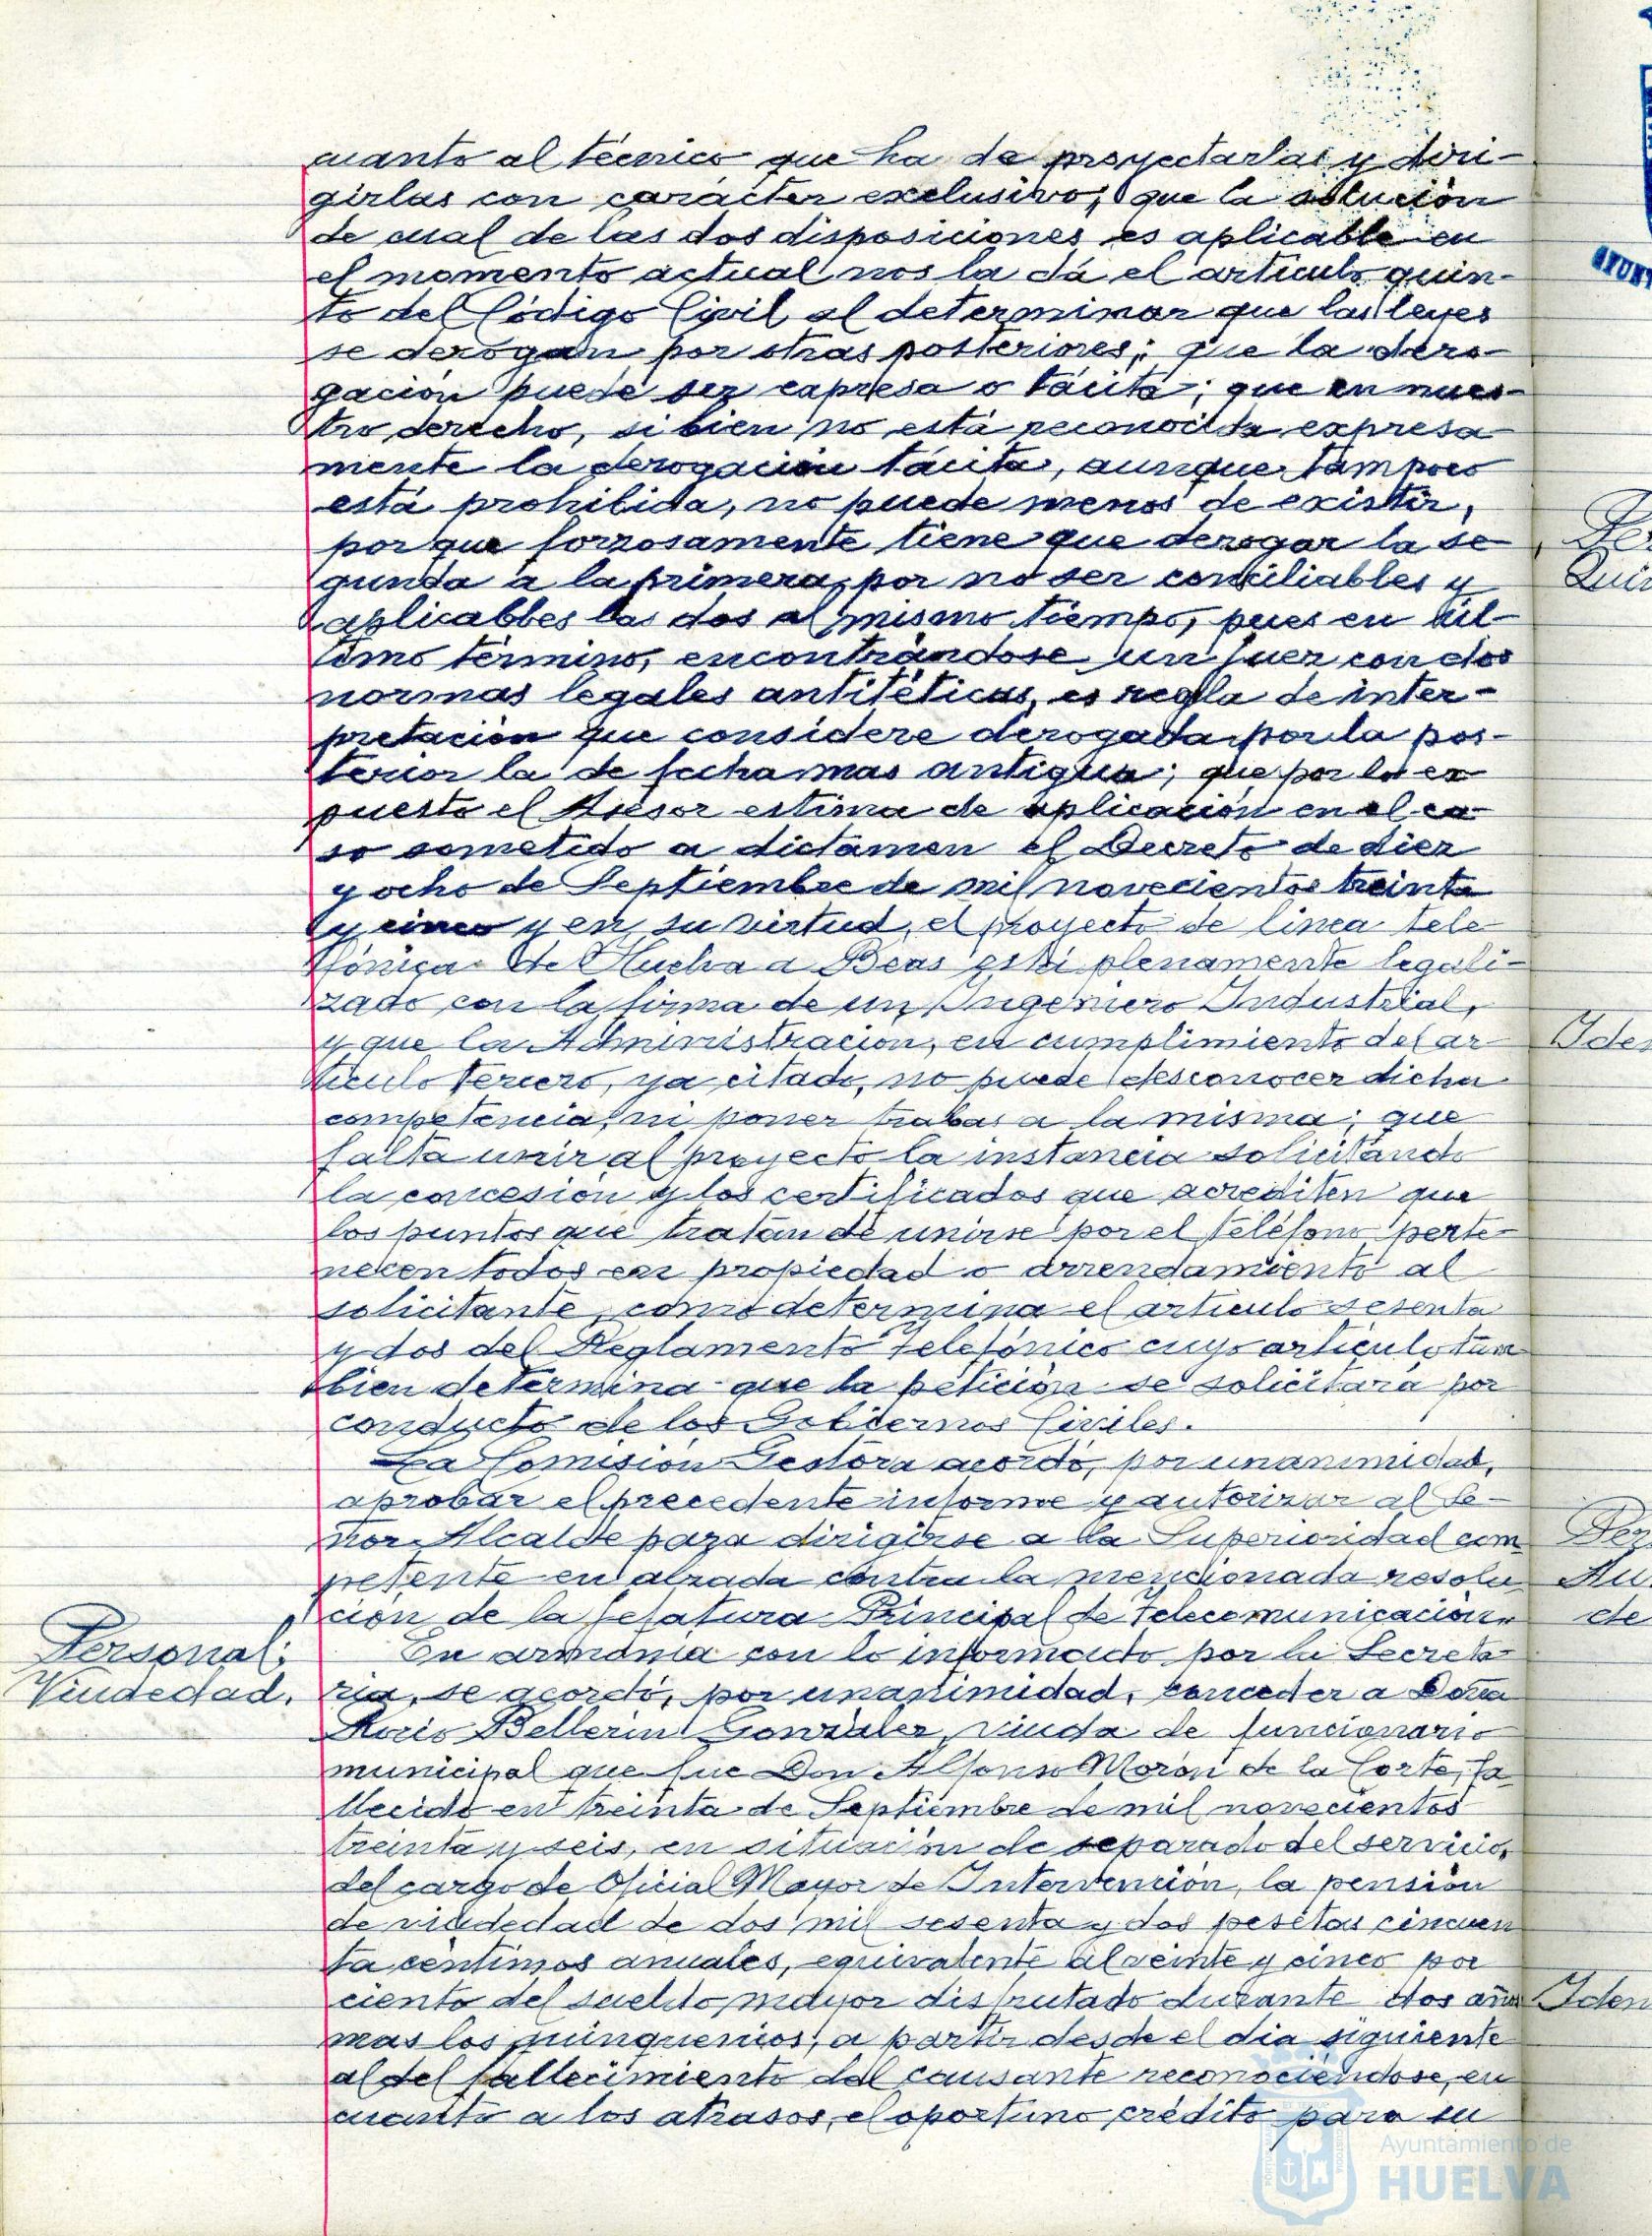 cuanto al técnico que ha de proyectarlas y diri-
girlas con carácter exclusivo; que la solución
de cual de las dos disposiciones es aplicable en
el momento actual nos la dá el artículo quin-
to del Código Civil al determinar que las leyes
se derogan por otras posteriores; que la dero-
gación puede ser expresa o tácita; que en nues-
tro derecho, si bien no está reconocida expresa-
mente la derogación tácita, aunque tampoco
está prohibida, no puede menos de existir,
porque forzosamente tiene que derogar la se-
gunda a la primera, por no ser conciliables y
aplicables las dos al mismo tiempo, pues en úl-
timo término, encontrándose un juez con dos
normas legales antitéticas, es regla de inter-
pretación que considere derogada por la pos-
terior la de fecha mas antigua; que por lo ex-
puesto el Asesor estima de aplicación en el ca-
so sometido a dictámen el Decreto de diez
y ocho de Septiembre de mil novecientos treinta
y cinco y en su virtud, el proyecto de línea tele-
fónica de Huelva a Beas está plenamente legali-
zado con la firma de un Ingeniero Industrial,
y que la Administración, en cumplimiento del ar-
tículo tercero, ya citado, no puede desconocer dicha
competencia, ni poner trabas a la misma; que
falta unir al proyecto la instancia solicitando
la concesión y los certificados que acrediten que
los puntos que tratan de unirse por el teléfono perte-
necen todos en propiedad o arrendamiento al
solicitante, como determina el artículo sesenta
y dos del Reglamento telefónico cuyo artículo tam
bien determina que la petición se solicitará por
conducto de los Gobiernos Civiles.
La Comisión Gestora acordó, por unanimidad,
aprobar el precedente informe y autorizar al Se-
ñor Alcalde para dirigirse a la Superioridad com
petente en alzada contra la mencionada resolu
ción de la Jefatura Principal de Telecomunicación.
Personal;
Viudedad.
En armonía con lo informado por la Secreta-
ría, se acordó, por unanimidad, conceder a Doña
Rocio Bellerin González, viuda de funcionario
municipal que fue Don Alfonso Morón de la Corte, fa-
llecido en treinta de Septiembre de mil novecientos
treinta y seis, en situación de separado del servicio,
del cargo de Oficial Mayor de Intervención, la pensión
de viudedad de dos mil sesenta y dos pesetas cincuen
ta céntimos anuales, equivalente al veinte y cinco por
ciento del sueldo mayor disfrutado durante dos años
mas los quinquenios, a partir desde el dia siguiente
al del fallecimiento del causante reconociéndose, en
cuanto a los atrasos, el oportuno crédito para su
Ayuntamiento de
HUELVA